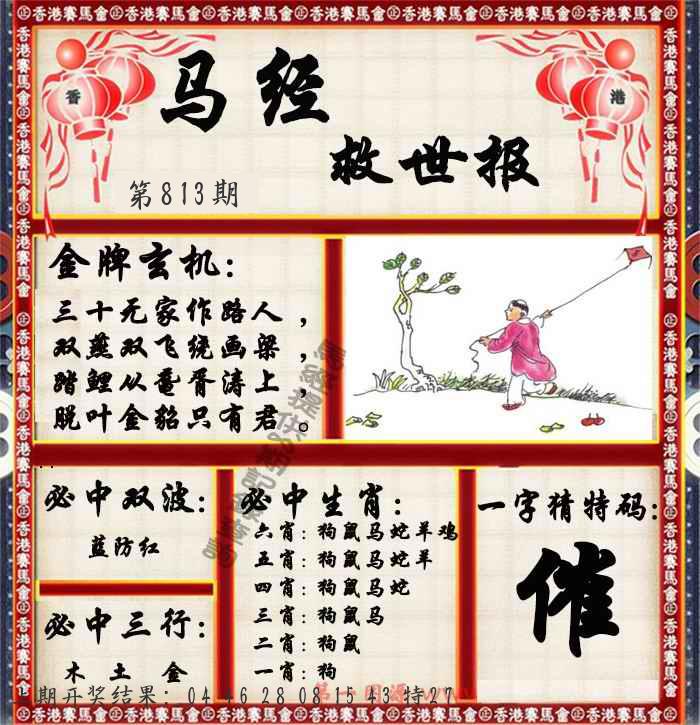 香港賽馬會
香 港
马经
救世报
第813期
金牌玄机:
三十无家作路人，
双燕双飞绕画梁，
踏鲤从鼋胥涛上，
脱叶金貂只有君。
必中双波:
蓝防红
必中三行:
木 土 金
必中生肖:
六肖:狗鼠马蛇羊鸡
五肖:狗鼠马蛇羊
四肖:狗鼠马蛇
三肖:狗鼠马
二肖:狗鼠
一肖:狗
一字猜特码:
催
期开奖结果: 04 46 28 08 15 43 特27